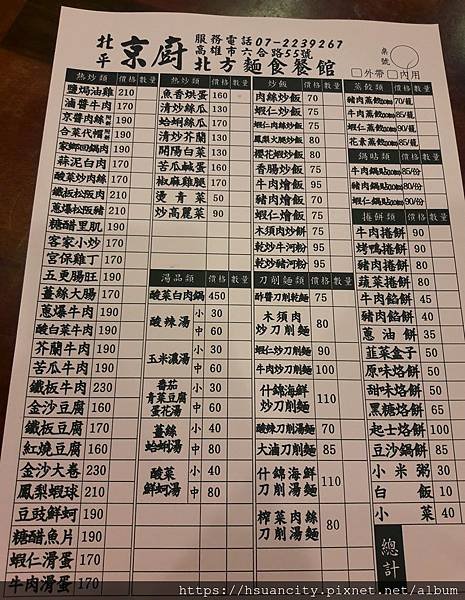 北平 京廚
服務電話07-2239267
高雄市六合路55號
北方麵食餐館
桌號
□外帶 □內用
熱炒類 價格 數量
鹽焗油雞 210
滷醬牛肉 170
京醬肉絲 190
合菜代帽 190
家鄉回鍋肉 190
蒜泥白肉 170
酸菜炒肉絲 170
鐵板松阪肉 210
蔥爆松阪豬 210
糖醋里肌 170
客家小炒 170
宮保雞丁 170
五更腸旺 190
薑絲大腸 170
蔥爆牛肉 190
酸白菜牛肉 190
芥蘭牛肉 190
苦瓜牛肉 190
鐵板牛肉 230
金沙豆腐 160
鐵板豆腐 170
紅燒豆腐 160
金沙大卷 230
鳳梨蝦球 210
豆豉鮮蚵 190
糖醋魚片 190
蝦仁滑蛋 170
牛肉滑蛋 170
熱炒類 價格 數量
魚香烘蛋 160
清炒絲瓜 130
蛤蜊絲瓜 170
清炒芥蘭 130
開陽白菜 130
苦瓜鹹蛋 160
椒麻雞腿 170
燙青菜 50
炒高麗菜 90
湯品類 價格 數量
酸菜白肉鍋 450
酸辣湯 小 30
中 60
玉米濃湯 小 30
中 60
番茄青菜豆腐蛋花湯 小 30
中 60
薑絲蛤蜊湯 小 50
中 80
酸菜鮮蚵湯 小 40
中 80
炒飯 價格 數量
肉絲炒飯 70
蝦仁炒飯 70
蝦仁肉絲炒飯 80
鳳凰火腿炒飯 80
櫻花蝦炒飯 80
香腸炒飯 75
牛肉燴飯 95
豬肉燴飯 70
蝦仁燴飯 75
木須肉炒餅 75
乾炒牛河粉 95
乾炒豬河粉 95
刀削麵類 價格 數量
酢醬刀削乾麵 75
木須肉炒刀削麵 80
蝦仁炒刀削麵 90
牛肉炒刀削麵 100
什錦海鮮炒刀削麵 110
酸辣刀削湯麵 70
大滷刀削湯麵 85
什錦海鮮刀削湯麵 110
榨菜肉絲刀削湯麵 80
蒸餃類 價格 數量
豬肉蒸餃(10顆) 70/籠
牛肉蒸餃(10顆) 85/籠
蝦仁蒸餃(10顆) 90/籠
花素蒸餃(10顆) 85/籠
鍋貼類 價格 數量
牛肉鍋貼(10顆) 85/份
豬肉鍋貼(10顆) 80/份
蝦仁鍋貼(10顆) 90/份
捲餅類 價格 數量
牛肉捲餅 90
烤鴨捲餅 90
豬肉捲餅 80
蔬菜捲餅 80
牛肉餡餅 45
豬肉餡餅 40
蔥油餅 35
韮菜盒子 50
原味烙餅 50
甜味烙餅 50
黑糖烙餅 65
起士烙餅 100
豆沙鍋餅 85
小米粥 30
白飯 10
小菜 40
總計
https://hsuancity.pixnet.net/album